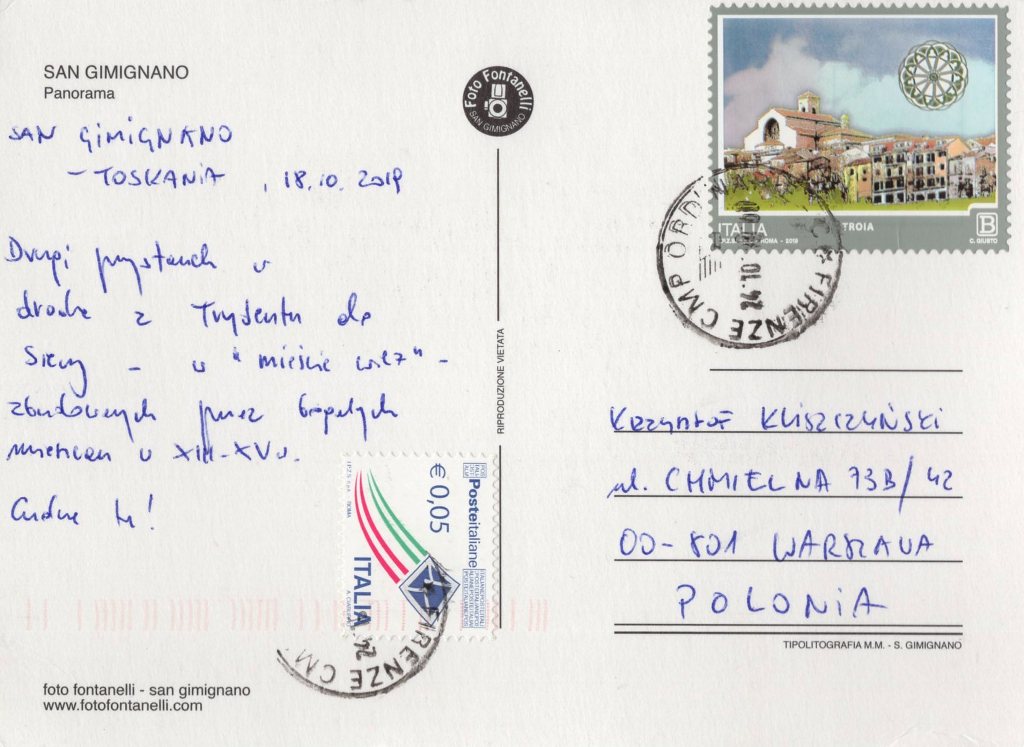 SAN GIMIGNANO
Panorama
SAN GIMIGNANO
- TOSKANIA, 18.10.2019
Drugi przystanek w
drodze z Trydentu do
Sieny - w "mieście wież" -
zbudowanych przez bogatych
mieszczan w XIII-XV w.
Cudne to!
foto fontanelli - san gimignano
www.fotofontanelli.com
Foto Fontanelli
SAN GIMIGNANO
RIPRODUZIONE VIETATA
€ 0,05
Posteitaliane
ITALIA
I.P.Z.S. S.p.A. ROMA
FIRENZE CM
24
ITALIA
TROIA
B
ROMA - 2019
C. GIUSTO
FIRENZE CMP ORDIN
24.10.
Krzysztof KLISZCZYŃSKI
ul. CHMIELNA 73B/42
00-801 WARSZAWA
POLONIA
TIPOLITOGRAFIA M.M. - S. GIMIGNANO